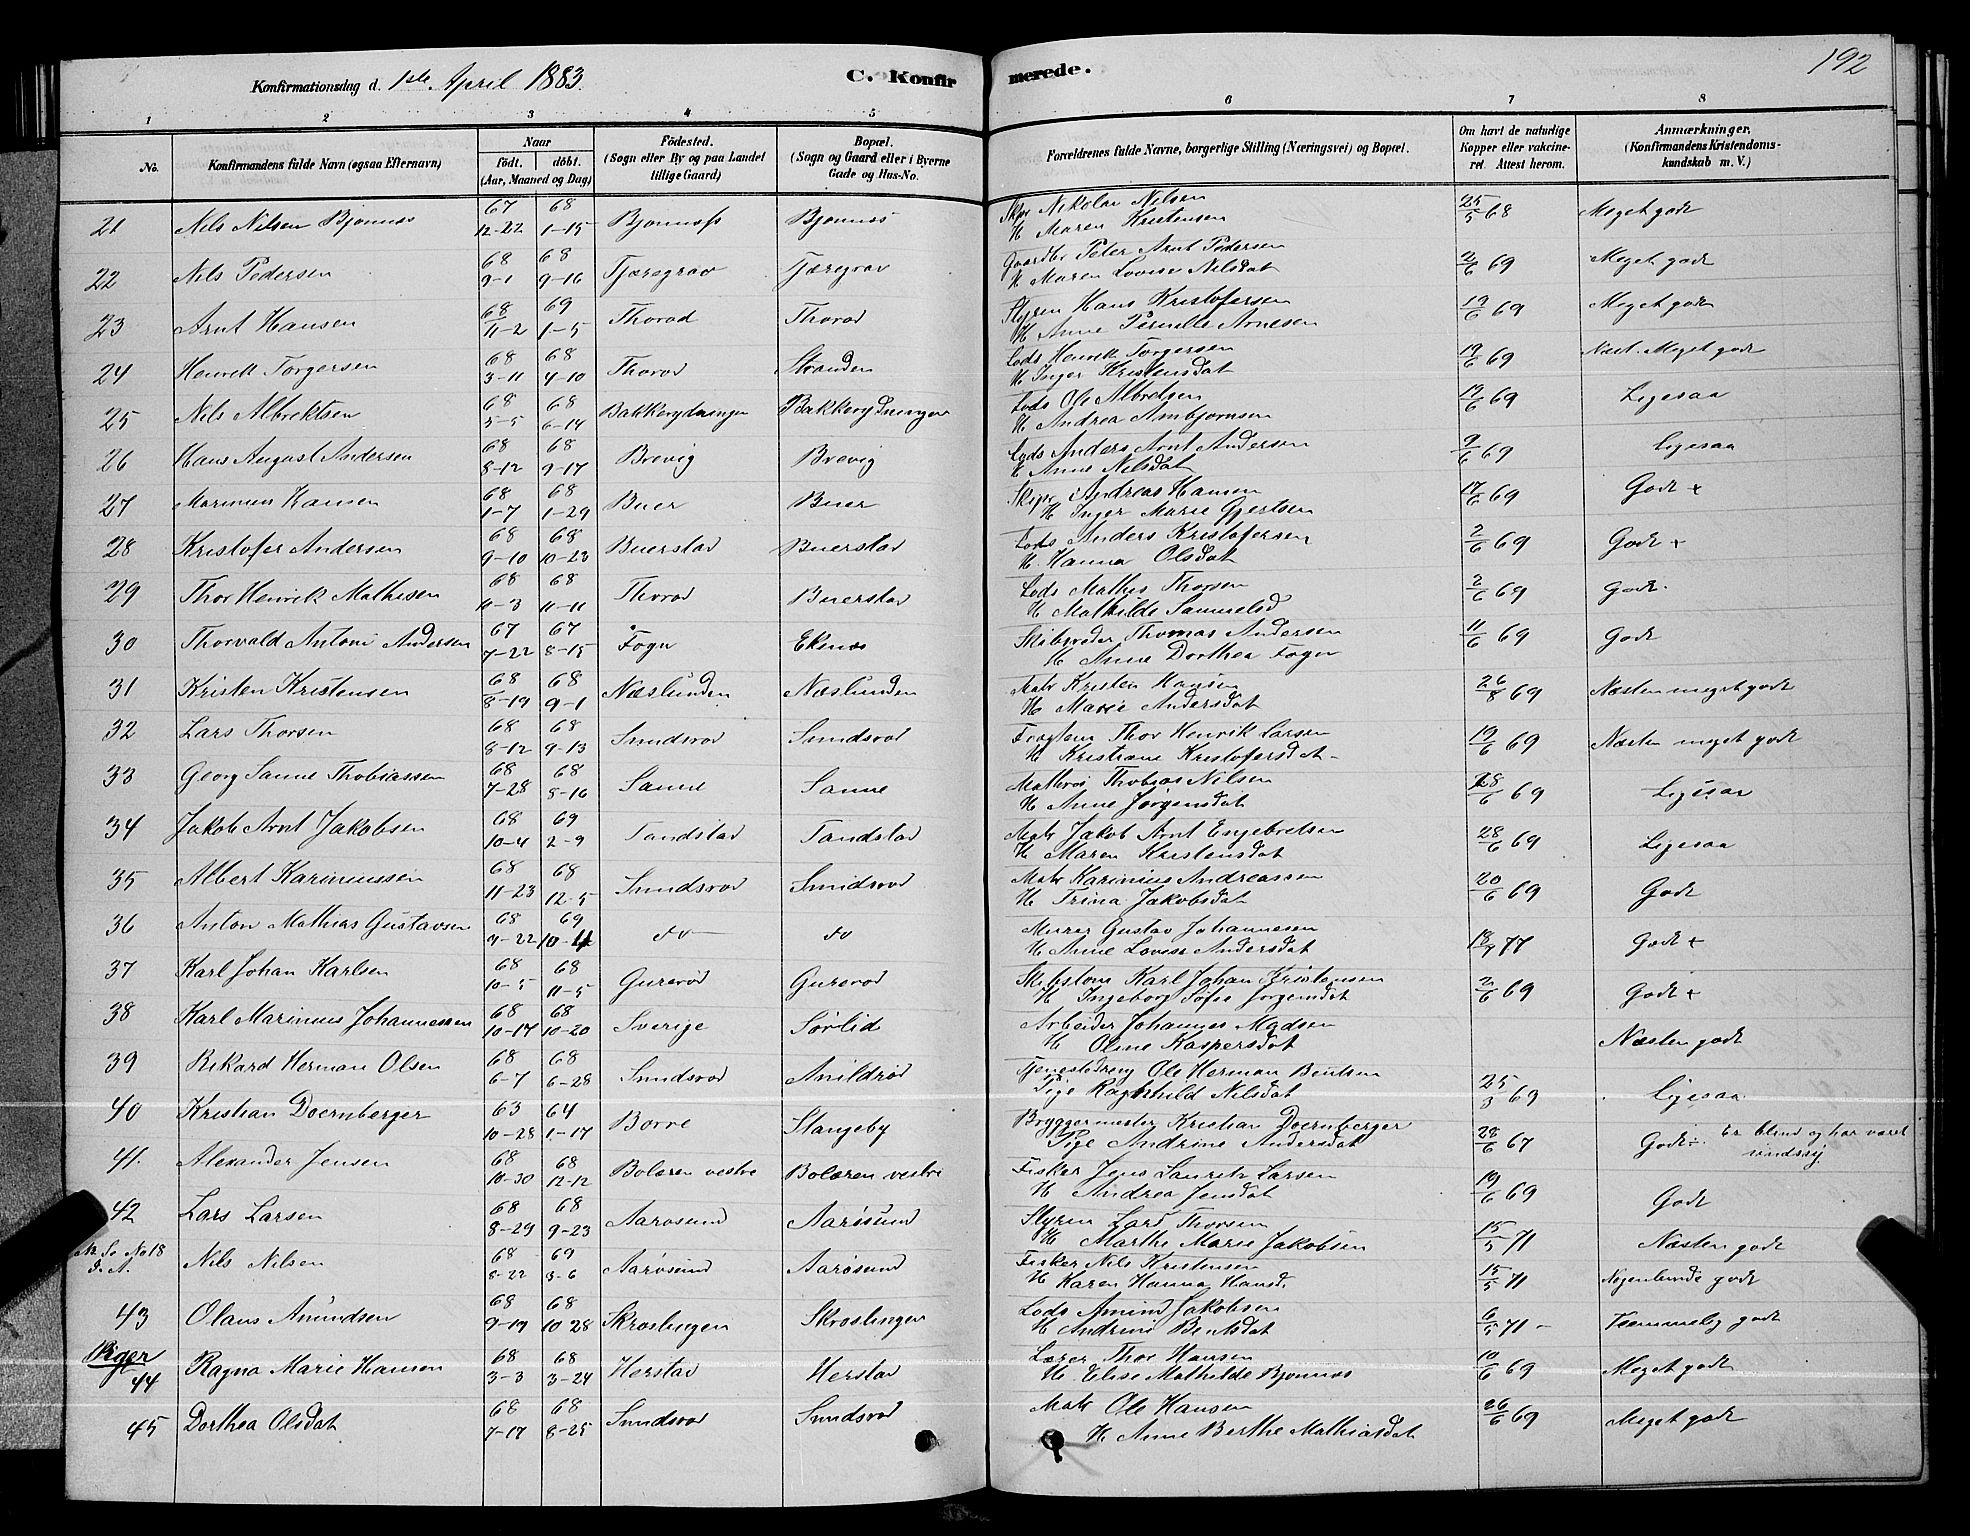 192
Konfirmationsdag d. 1ste April 1883.
C. Konfirmerede.
1 2 3 4 5 6 7 8
No. Konfirmandens fulde Navn (ogsaa Efternavn) Naar født. døbt. (Aar, Maaned og Dag) Födested. (Sogn eller By og paa Landet tillige Gaard) Bopæl. (Sogn og Gaard eller i Byerne Gade og Hus-No. Forældrenes fulde Navne, borgerlige Stilling (Næringsvei) og Bopæl. Om havt de naturlige Kopper eller vakcineret. Attest herom. Anmærkninger. (Konfirmandens Kristendomskundskab m. V.)
21 Nils Nilsen Bjonnes 67 12-22 68 1-15 Bjonness Bjonnes Skpr Nikolai Nilsen H Maren Kristensen 25/5 68 Meget godt
22 Nils Pedersen 68 9-1 68 9-16 Tjæregrav Tjæregrav Gaardbr Peter Arnt Pedersen H Maren Lovise Nilsdat 2/6 69 Meget godt
23 Arnt Hansen 68 11-2 69 1-5 Thorod Thorod Styrm Hans Kristofersen H Anne Pernille Arnesen 19/6 69 Meget godt
24 Henrik Torgersen 68 3-11 68 4-10 Thorod Stranden Lods Henrik Torgersen H Inger Kristensdat 19/6 69 Næst. Meget godt
25 Nils Albrektsen 68 5-5 68 6-14 Bakkerydningen Bakkerydningen Lods Ole Albretsen H Andrea Arnbjornsen 19/6 69 Ligesaa
26 Hans August Andersen 68 8-12 68 9-17 Brevig Brevig Lods Anders Arnt Andersen H Anne Nilsdat 9/6 69 Ligesaa
27 Marinius Hansen 68 1-7 68 1-29 Buer Buer Skipr Andreas Hansen H Inger Marie Gjertsen 17/6 69 Godt +
28 Kristofer Andersen 68 9-10 68 10-23 Buerstad Buerstad Lods Anders Kristofersen H. Hanna Olsdat 2/6 69 Godt +
29 Thor Henrik Mathisen 68 10-3 68 11-11 Thorod Buerstad Lods Mathis Thorsen H Mathilde Samuelsd 2/6 69 Godt.
30 Thorvald Antoni Andersen 67 7-22 67 8-15 Fogn Ekenes Skibsreder Thomas Andersen H Anne Dorthea Fogn 11/6 69 Godt
31 Kristen Kristensen 68 8-19 68 9-1 Næslunden Næslunden Matr Kristen Hansen H Marie Andersdat 26/8 69 Næsten meget godt
32 Lars Thorsen 68 8-12 68 9-13 Sundsrod Sundsrod Thor Henrik Larsen H Kristiane Kristofersdat 19/6 69 Næsten meget godt
33 Georg Sanne Thobiassen 68 7-28 68 8-16 Sanne Sanne Matros Thobias Nilsen H Anne Jørgensdat 28/6 69 Ligesaa
34 Jakob Arnt Jakobsen 68 10-4 69 2-9 Tandstad Tandstad Matr Jakob Arnt Engebretsen H Maren Kristensdat 28/6 69 Ligesaa
35 Albert Kariniussen 68 11-23 68 12-5 Sundsrod Sundsrod Matr Karinius Andreassen H Trina Jakobsdat 20/6 69 Godt
36 Anton Mathias Gustavsen 68 9-22 69 10-4 do do Murer Gustav Johannesen H Anne Lovise Andersdat 77 Godt +
37 Karl Johan Karlsen 68 10-5 68 11-5 Gurerød Gurerod Skibstom Karl Johan Kristensen H Ingeborg Sofie Jorgensdat 2/6 69 Godt +
38 Karl Marinius Johannessen 68 10-17 68 10-20 Sverige Sørlid Arbeider Johannes Madsen H Oline Kaspersdat Næsten godt
39 Rikard Herman Olsen 68 6-7 68 6-28 Sundsrod Anildrød Tjenestedreng Ole Herman Bentsen Pige Ragnhild Nilsdat 25/3 69 Ligesaa
40 Kristian Doernberger 63 10-28 64 1-17 Borre Stangeby Bryggermester Kristian Doernberger Pige Andrine Andersdat 28/6 67 Godt ÷ Er blind og har været sindssyg
41. Alexander Jensen 68 10-30 68 12-12 Bolæren vestre Bolæren vestre Fisker Jens Lauritz Larsen H Andrea Jensdat 19/6 69 Godt
42 Lars Larsen 68 8-29 68 9-23 Aarosund Aarøsund Styrm Lars Thorsen H Marthe Marie Jakobsen 15/5 71 Næsten godt
No 18 Nils Nilsen 68 8-22 69 3-6 Aarøsund Aarøsund Fisker Nils Kristensen H Karen Hanna Hansd. 15/5 71 Nogenlunde godt
43 Olaus Amundsen 68 9-19 68 10 28 Skroslingen Skroslingen Lods Amund Jakobsen H Andrine Bentsdat 6/5 71 – Temmelig godt
Piger
44 Ragna Marie Hansen 68 3-3 68 3-24 Herstad Herstad Lærer Thor Hansen H. Elise Mathilde Bjonnes 10/6 69 Meget godt
45 Dorthea Olsdat 68 7-17 68 8-25 Sundsrod Sundsrod Matr Ole Hansen H Anne Berthe Mathiasdat 26/6 69 Meget godt